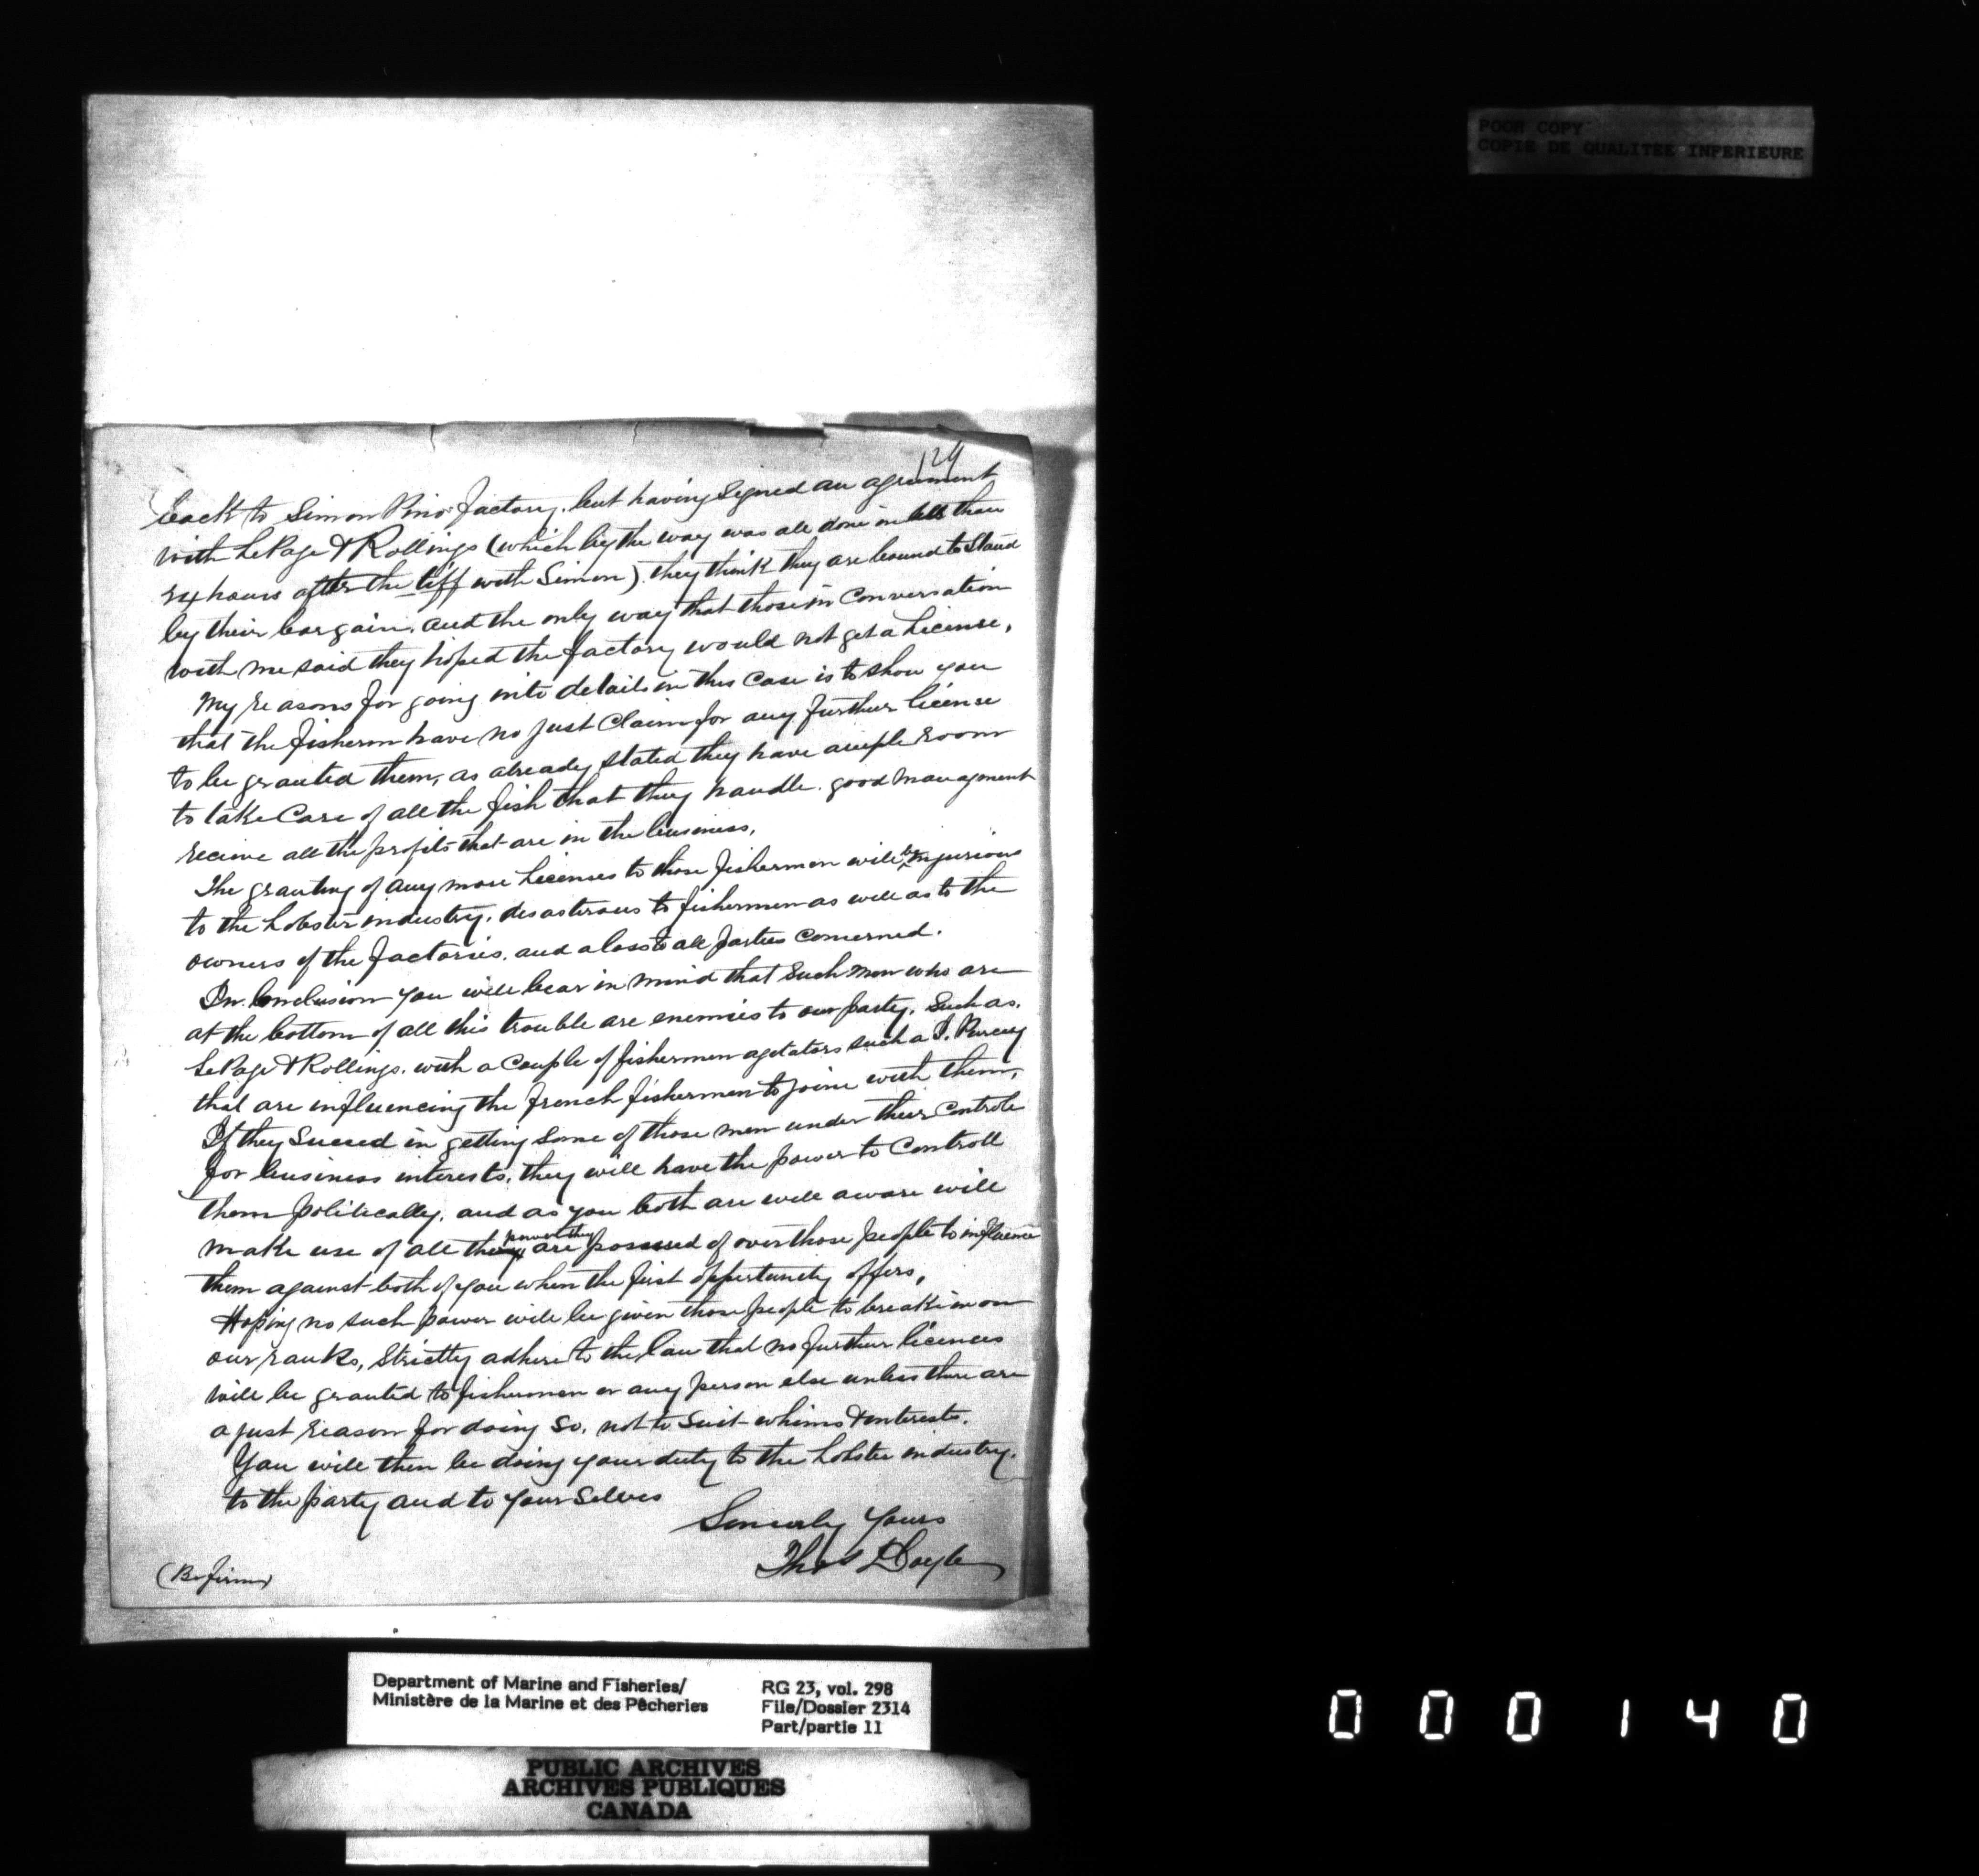 POOR COPY
COPIE DE QUALITEE INFERIEURE
129
back to Simon Pino factory, but having signed an agreement
with LePage & Rollings (which by the way was all done in less than
24 hours after the tiff with Simon) they think they are bound to stand
by their bargain. and the only way that those in Conversation
with me said they hoped the factory would not get a License,
My reasons for going into details in this Case is to show you
that the fisherm have no just Claim for any further license
to be granted them, as already stated they have ample room
to take Care of all the fish that they handle. good management
recieve all the profits that are in the business,
The granting of any more Licenses to those fishermen will be injurious
to the Lobster industry, desasterous to fishermen as well as to the
owners of the factories. and a loss to all parties concerned.
In Conclusion you will bear in mind that such men who are
at the bottom of all this trouble are enemies to our party, Such as.
LePage & Rollings. with a Couple of fishermen agetators such a J. Purcey
that are influencing the french fishermen to joine with them,
If they Suceed in getting Some of those men under their Controle
for business interests, they will have the power to Controll
them politically, and as you both are well aware will
make use of all the power they are possessed of over those people to influence
them against both of you when the first oppertunity offers,
Hoping no such power will be given those people to break in on
our ranks, Strictly adhere to the law that no further licences
will be granted to fishermen or any person else unless there are
a just reason for doing so, not to Suit whims & interests.
You will then be doing your duty to the Lobster industry.
to the party and to your Selves
Sincerly Yours
Thos Doyle
(Be firm)
Department of Marine and Fisheries/
Ministère de la Marine et des Pêcheries
RG 23, vol. 298
File/Dossier 2314
Part/partie 11
PUBLIC ARCHIVES
ARCHIVES PUBLIQUES
CANADA
000140